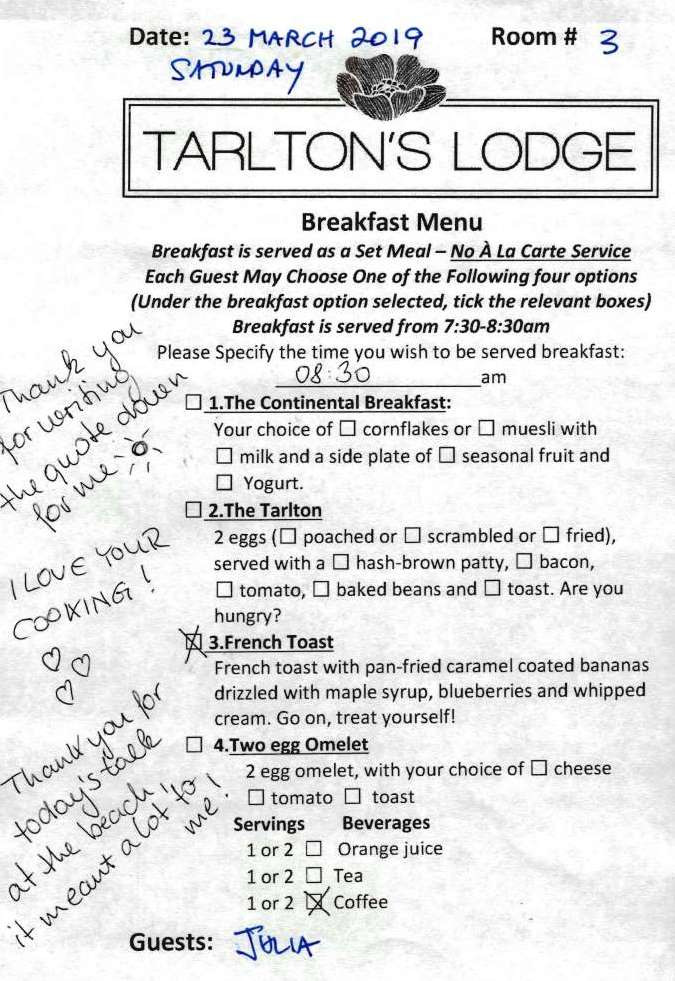 Date: 23 MARCH 2019 Room # 3
SATURDAY
TARLTON'S LODGE
Breakfast Menu
Breakfast is served as a Set Meal – No À La Carte Service
Each Guest May Choose One of the Following four options
(Under the breakfast option selected, tick the relevant boxes)
Breakfast is served from 7:30-8:30am
Please Specify the time you wish to be served breakfast:
08:30 am
☐ 1.The Continental Breakfast:
Your choice of ☐ cornflakes or ☐ muesli with
☐ milk and a side plate of ☐ seasonal fruit and
☐ Yogurt.
☐ 2.The Tarlton
2 eggs (☐ poached or ☐ scrambled or ☐ fried),
served with a ☐ hash-brown patty, ☐ bacon,
☐ tomato, ☐ baked beans and ☐ toast. Are you
hungry?
☒ 3.French Toast
French toast with pan-fried caramel coated bananas
drizzled with maple syrup, blueberries and whipped
cream. Go on, treat yourself!
☐ 4.Two egg Omelet
2 egg omelet, with your choice of ☐ cheese
☐ tomato ☐ toast
Servings Beverages
1 or 2 ☐ Orange juice
1 or 2 ☐ Tea
1 or 2 ☒ Coffee
Guests: JULIA
Thank you
for writing
the quote down
for me
I LOVE YOUR
COOKING!
Thank you for
today's talk
at the beach,
it meant a lot to
me!